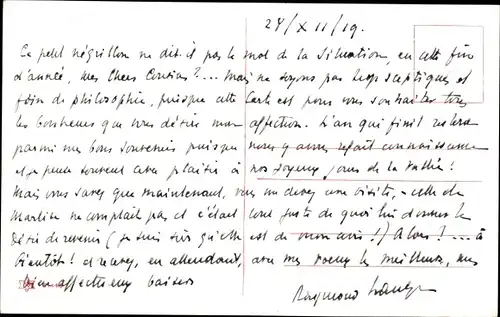 24/XII/19.
Ce petit négrillon ne dit-il pas le mot de la situation, en cette fin
d'année, mes Chers Cousins ?... Mais ne soyons pas trop sceptiques et
foin de philosophie, puisque cette Carte est pour vous souhaiter tous
les bonheurs que vous désire mon affection. L'an qui finit restera
parmi mes bons souvenirs puisque nous y avons refait connaissance
et je pense souvent avec plaisir à nos joyeux jours de la Vallée !
Mais vous savez que maintenant, vous me devez une visite, - celle de
Marlise ne comptait pas et c'était tout juste de quoi lui donner le
désir de revenir (je suis sûr qu'elle est de mon avis !) Alors ? ... à
bientôt ! et recevez, en attendant, avec mes voeux les meilleurs, mes
bien affectueux baisers
Raymond